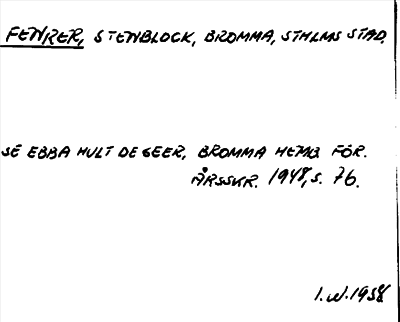 FENRER, STENBLOCK, BROMMA, STHLMS STAD.
SE EBBA HULT DE GEER, BROMMA HEMB. FÖR.
ÅRSSKR. 1948, S. 76.
I.W. 1958